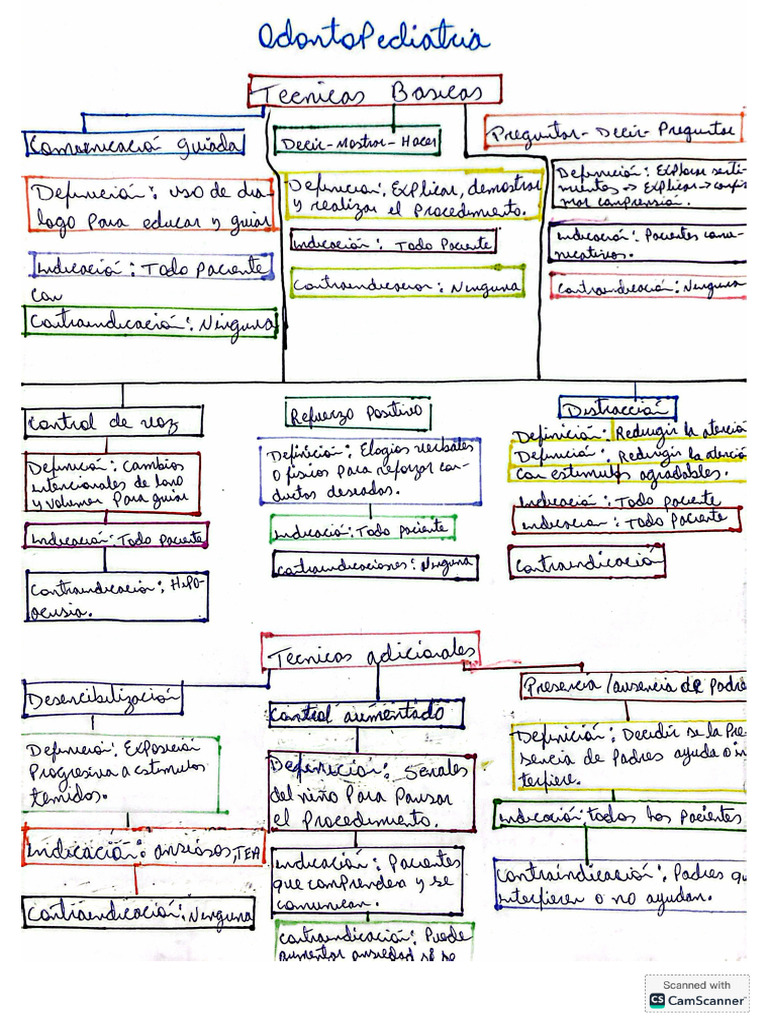 OdontoPediatria
Tecnicas Basicas
Comunicació guiada
Definición: uso de dia-
logo para educar y guiar
Indicación: Todo paciente
con
Contraindicación: Ninguna
Decir-Mostrar-Hacer
Definicion: Explicar, demostrar
y realizar el Procedimento.
Indicación: Todo Paciente
Contraindicacion: Ninguna
Preguntar-Decir-Preguntar
Definición: Explorar senti-
mientos → Explicar → confir
mar comprensión.
Indicación: Pacientes comu-
nicativos.
Contraindicación: Ninguna
Control de voz
Definición: Cambios
intencionales de tono
y volumen Para guiar
Indicación: Todo Paciente
Contraindicación: Hipo-
acusia.
Refuerzo Positivo
Definición: Elogios verbales
o fisicos para reforzar con-
ductos deseados.
Indicació: Todo paciente
Contraindicaciones: Ninguna
Distracción
Definición: Redirigir la atenció
Definición: Redirigir la atenció
con estimulos agradables.
Indicació: Todo paciente
Indicacion: Todo Paciente
Contraindicació
Tecnicas adicionales
Desencibilización
Definición: Exposición
Progresiva a estimulos
temidos.
Indicación: ansiosos, TEA
Contraindicación: Ninguna
Control aumentado
Definición: Senales
del niño Para Pausar
el Procedimento.
Indicación: Pacientes
que comprenden y se
comunican.
Contraindicación: Puede
aumentar ansiedad si se
Presencia/ausencia de Padre
Definición: Decidir se la Pre
sencia de Padres ayuda o in
terfiere.
Indicación: todos los Pacientes
Contraindicación: Padres qu
interfieren o no ayudan.
Scanned with
CS CamScanner